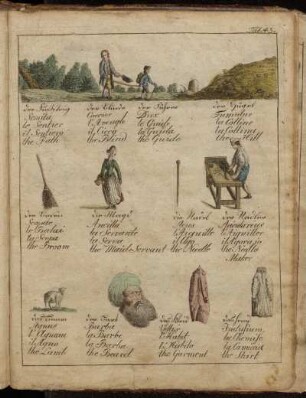 Tab. 43.
der Fußsteig
Semita
le Sentier
il Sentiero
the Path
der Blinde
Coecus
l'Aveugle
il Cieco
the Blind
der Führer
Dux
le Guide
la Guida
the Guide
der Hügel
Tumulus
la Colline
la Collina
the Hill
der Besen
Scopae
le Balai
la Scopa
the Broom
die Magd
Ancilla
la Servante
la Serva
the Maid-Servant
die Nadel
Acus
l'Aiguille
l'Ago
the Needle
der Nadler
Acicularius
l'Aiguillier
the Needle
Maker
das Lamm
Agnus
l'Agneau
l'Agno
the Lamb
der Bart
Barba
la Barbe
la Barba
the Beard
das Kleid
Vestis
l'Habit
the Garment
das Hemd
Indusium
la Chemise
la Camicia
the Shirt